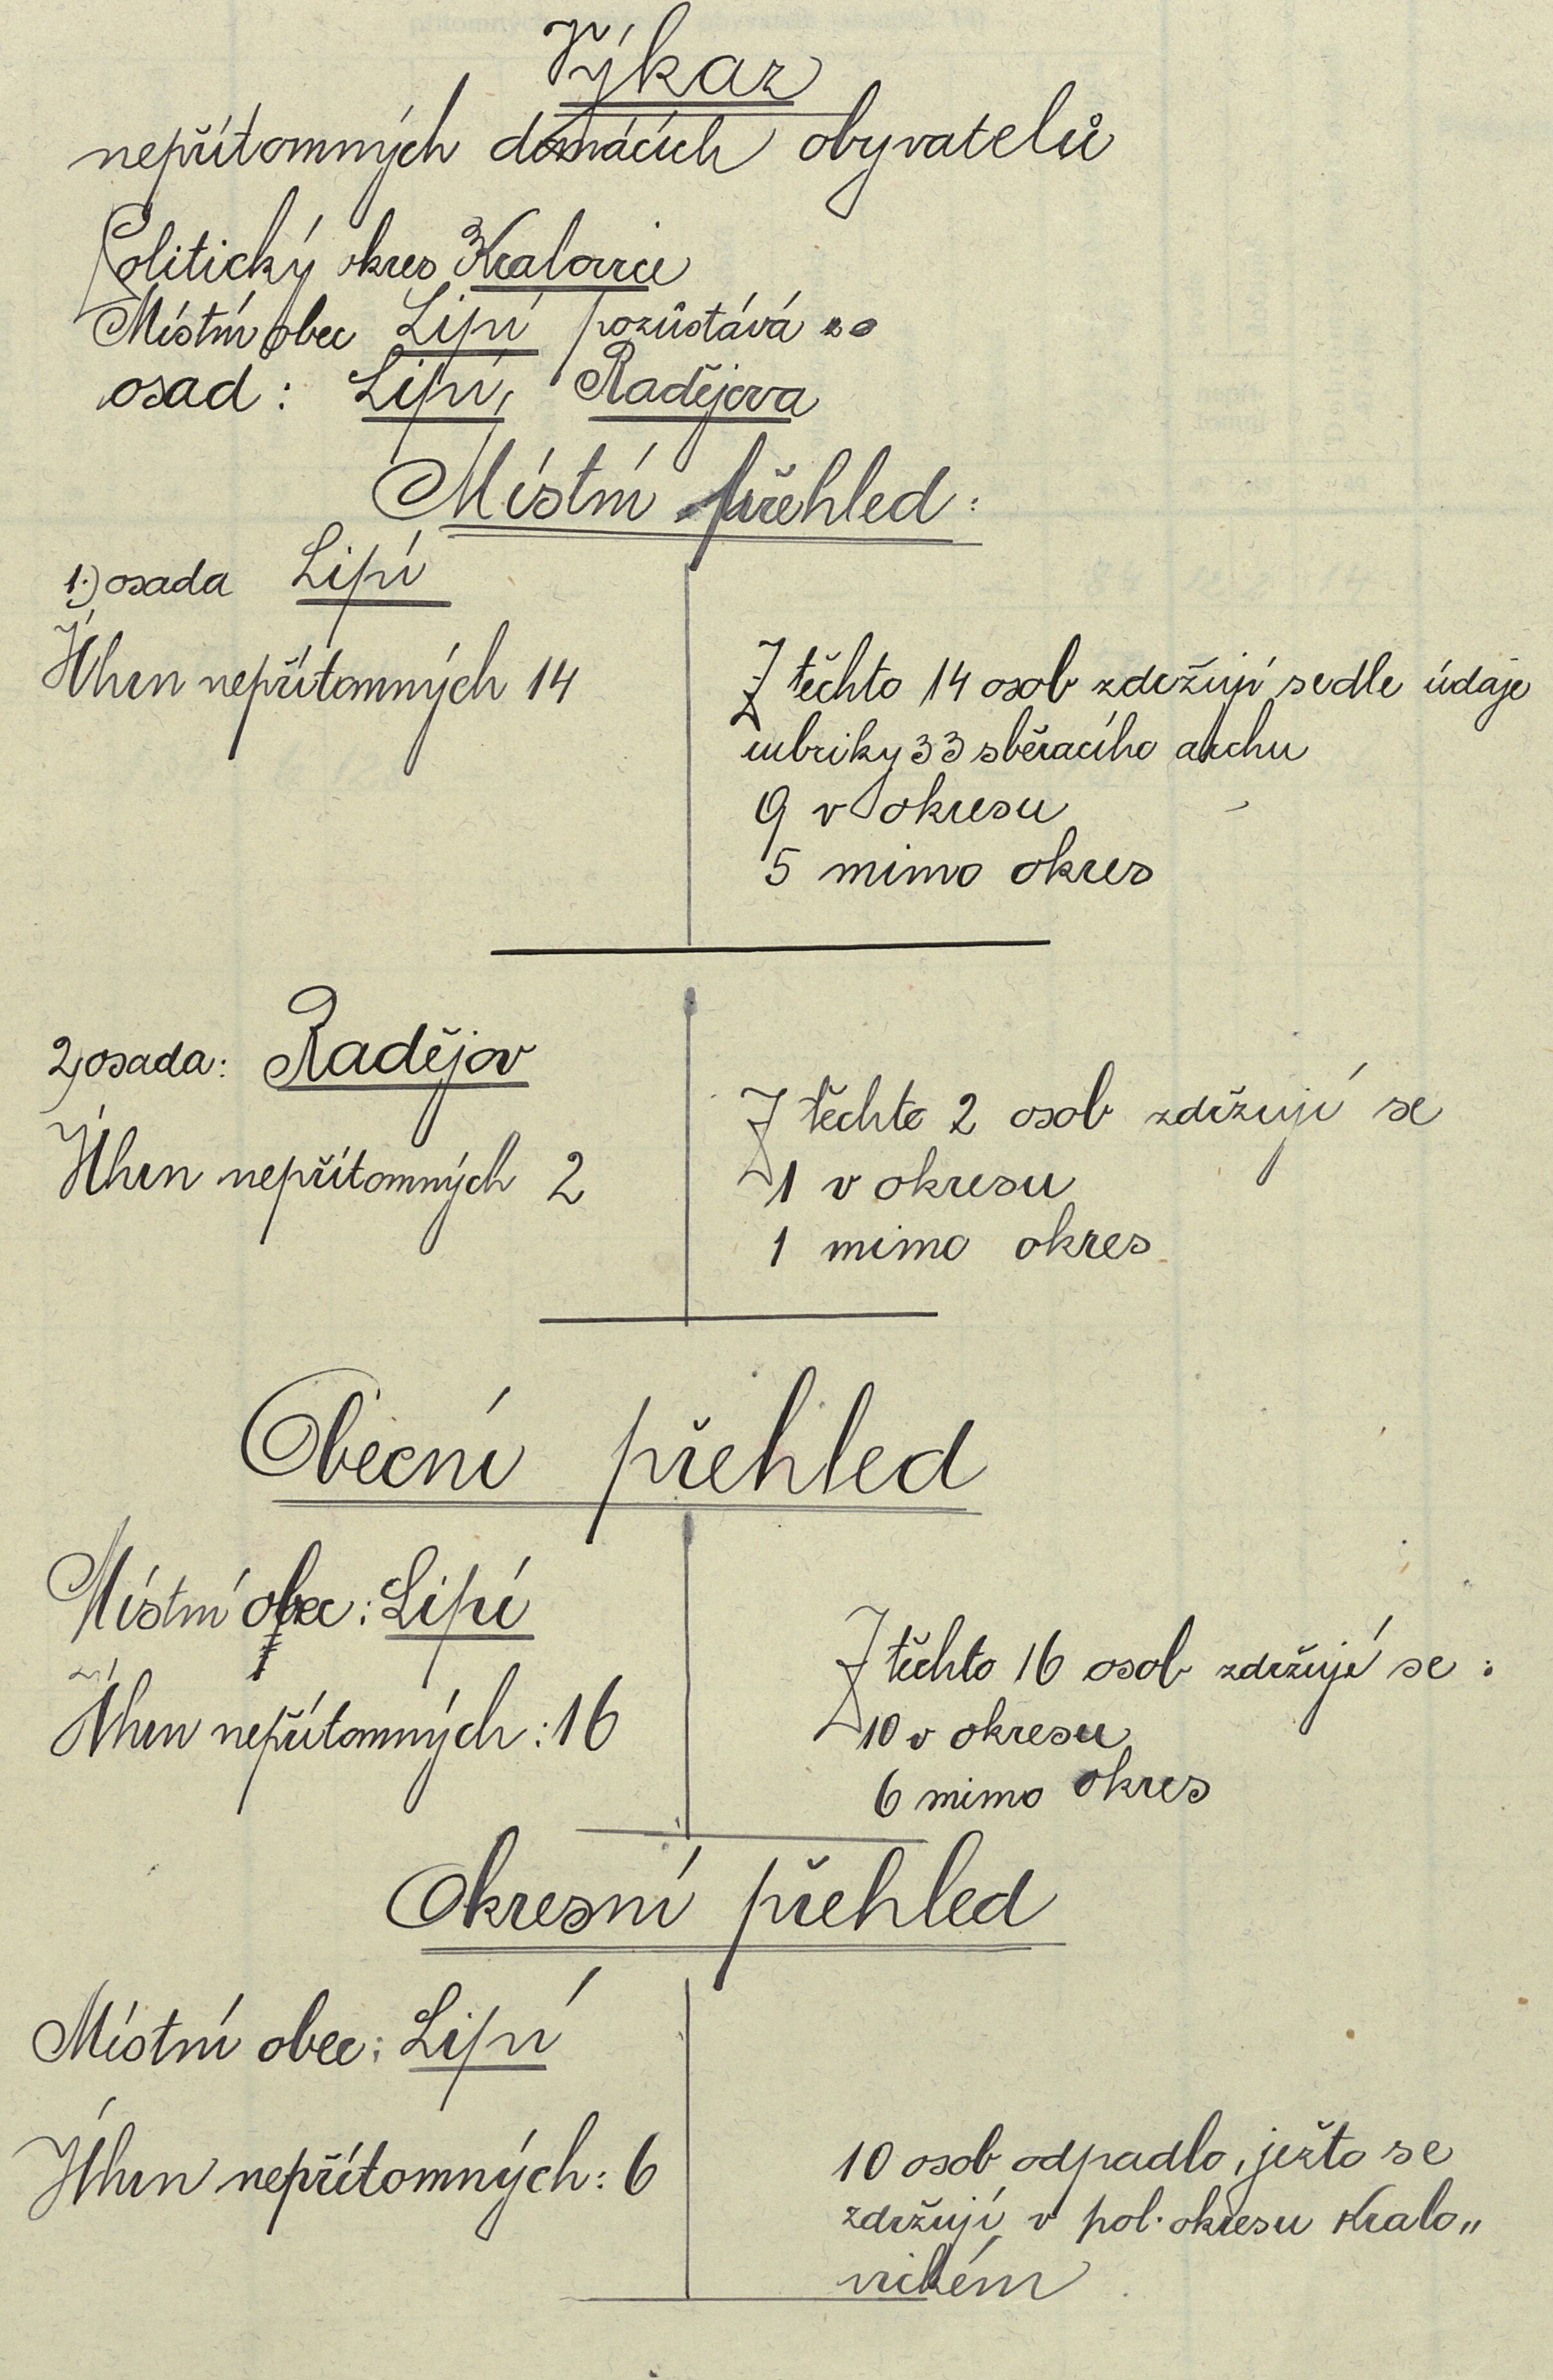 Výkaz
nepřítomných domácích obyvatelů
Politický okres Kralovice
Místní obec Lipí pozůstává ze
osad: Lipí, Radějova
Místní přehled:
1.) osada Lipí
Úhrn nepřítomných 14
Z těchto 14 osob zdržují se dle údaje
rubriky 33 sběracího archu
9 v okresu
5 mimo okres
2) osada: Radějov
Úhrn nepřítomných 2
Z těchto 2 osob zdržují se
1 v okresu
1 mimo okres
Obecní přehled
Místní obec: Lipí
Úhrn nepřítomných: 16
Z těchto 16 osob zdržují se:
10 v okresu
6 mimo okres
Okresní přehled
Místní obec: Lipí
Úhrn nepřítomných: 6
10 osob odpadlo, ježto se
zdržují v pol. okresu Kralo„
vickém